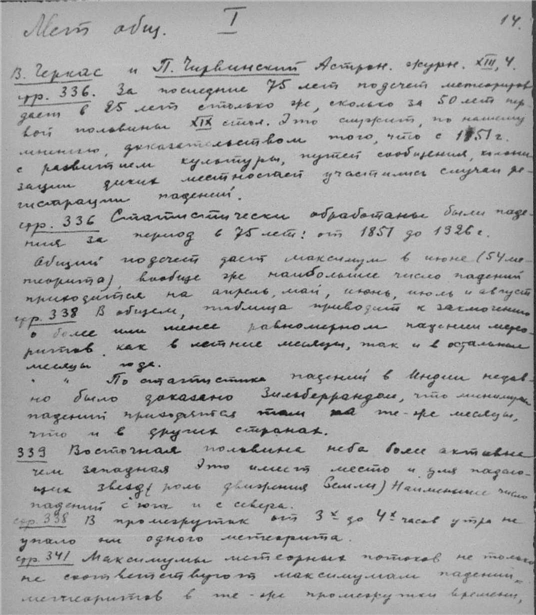 14.
Мет общ. I
В. Черкас и П. Чирвинский Астрон. журн. XIII, 4.
стр. 336. За последние 75 лет подсчет метеоритов
дает в 25 лет столько же, сколько за 50 лет пер-
вой половины XIX стол. Это служит, по нашему
мнению, доказательством того, что с 1851 г.
с развитием культуры, путей сообщения, колони
зации диких местностей участились случаи ре-
гистрации падений.
стр. 336 Статистически обработаны были паде-
ния за период в 75 лет: от 1851 до 1926 г.
Общий подсчет дает максимум в июне (54 ме-
теорита), вообще же наибольшее число падений
приходится на апрель, май, июнь, июль и август
стр. 338 В общем, таблица приводит к заключению
о более или менее равномерном падении метео-
ритов, как в летние месяцы, так и в остальные
месяцы года.
" " По статистике падений в Индии недав-
но было доказано Зильберрандом, что минимум
падений приходятся на те-же месяцы,
что и в других странах.
339 Восточная половина неба более активна
чем западная Это имеет место и для падаю-
щих звезд (роль движения Земли) Наименьшее число
падений с юга и с севера.
стр. 338 В промежуток от 3х до 4х часов утра не
упало ни одного метеорита.
стр. 341 Максимумы метеорных потоков не только
не соответствуют максимумам падений
метеоритов в те-же промежутки времени,